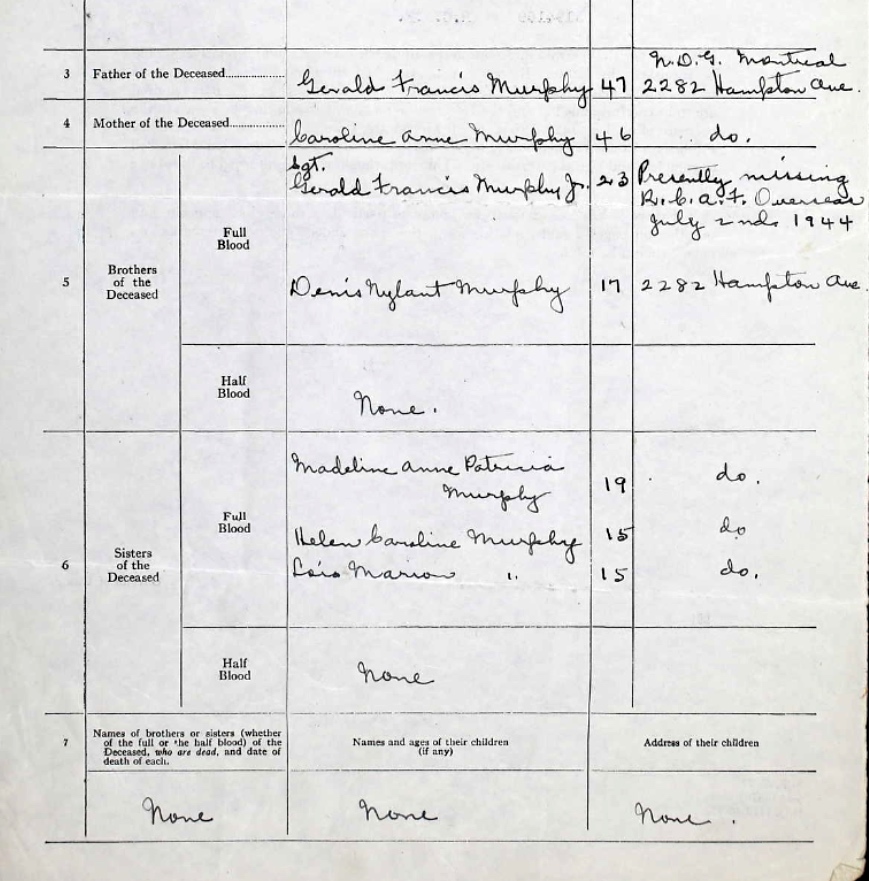 N.D.G. Montreal
3 Father of the Deceased.................. Gerald Francis Murphy 47 2282 Hampton Ave.
4 Mother of the Deceased................ Caroline Anne Murphy 46 do.
Sgt.
Gerald Francis Murphy Jr. 23 Presently missing
R.C.A.F. Overseas
July 2nd, 1944
Full
Blood
5 Brothers
of the
Deceased
Denis Nylant Murphy 17 2282 Hampton Ave.
Half
Blood
None.
Madeline Anne Patricia
Murphy 19 do.
Full
Blood
Helen Caroline Murphy 15 do
6 Sisters
of the
Deceased
Lois Marion " 15 do.
Half
Blood
None
7 Names of brothers or sisters (whether
of the full or the half blood) of the
Deceased, who are dead, and date of
death of each.
Names and ages of their children
(if any)
Address of their children
None None None.